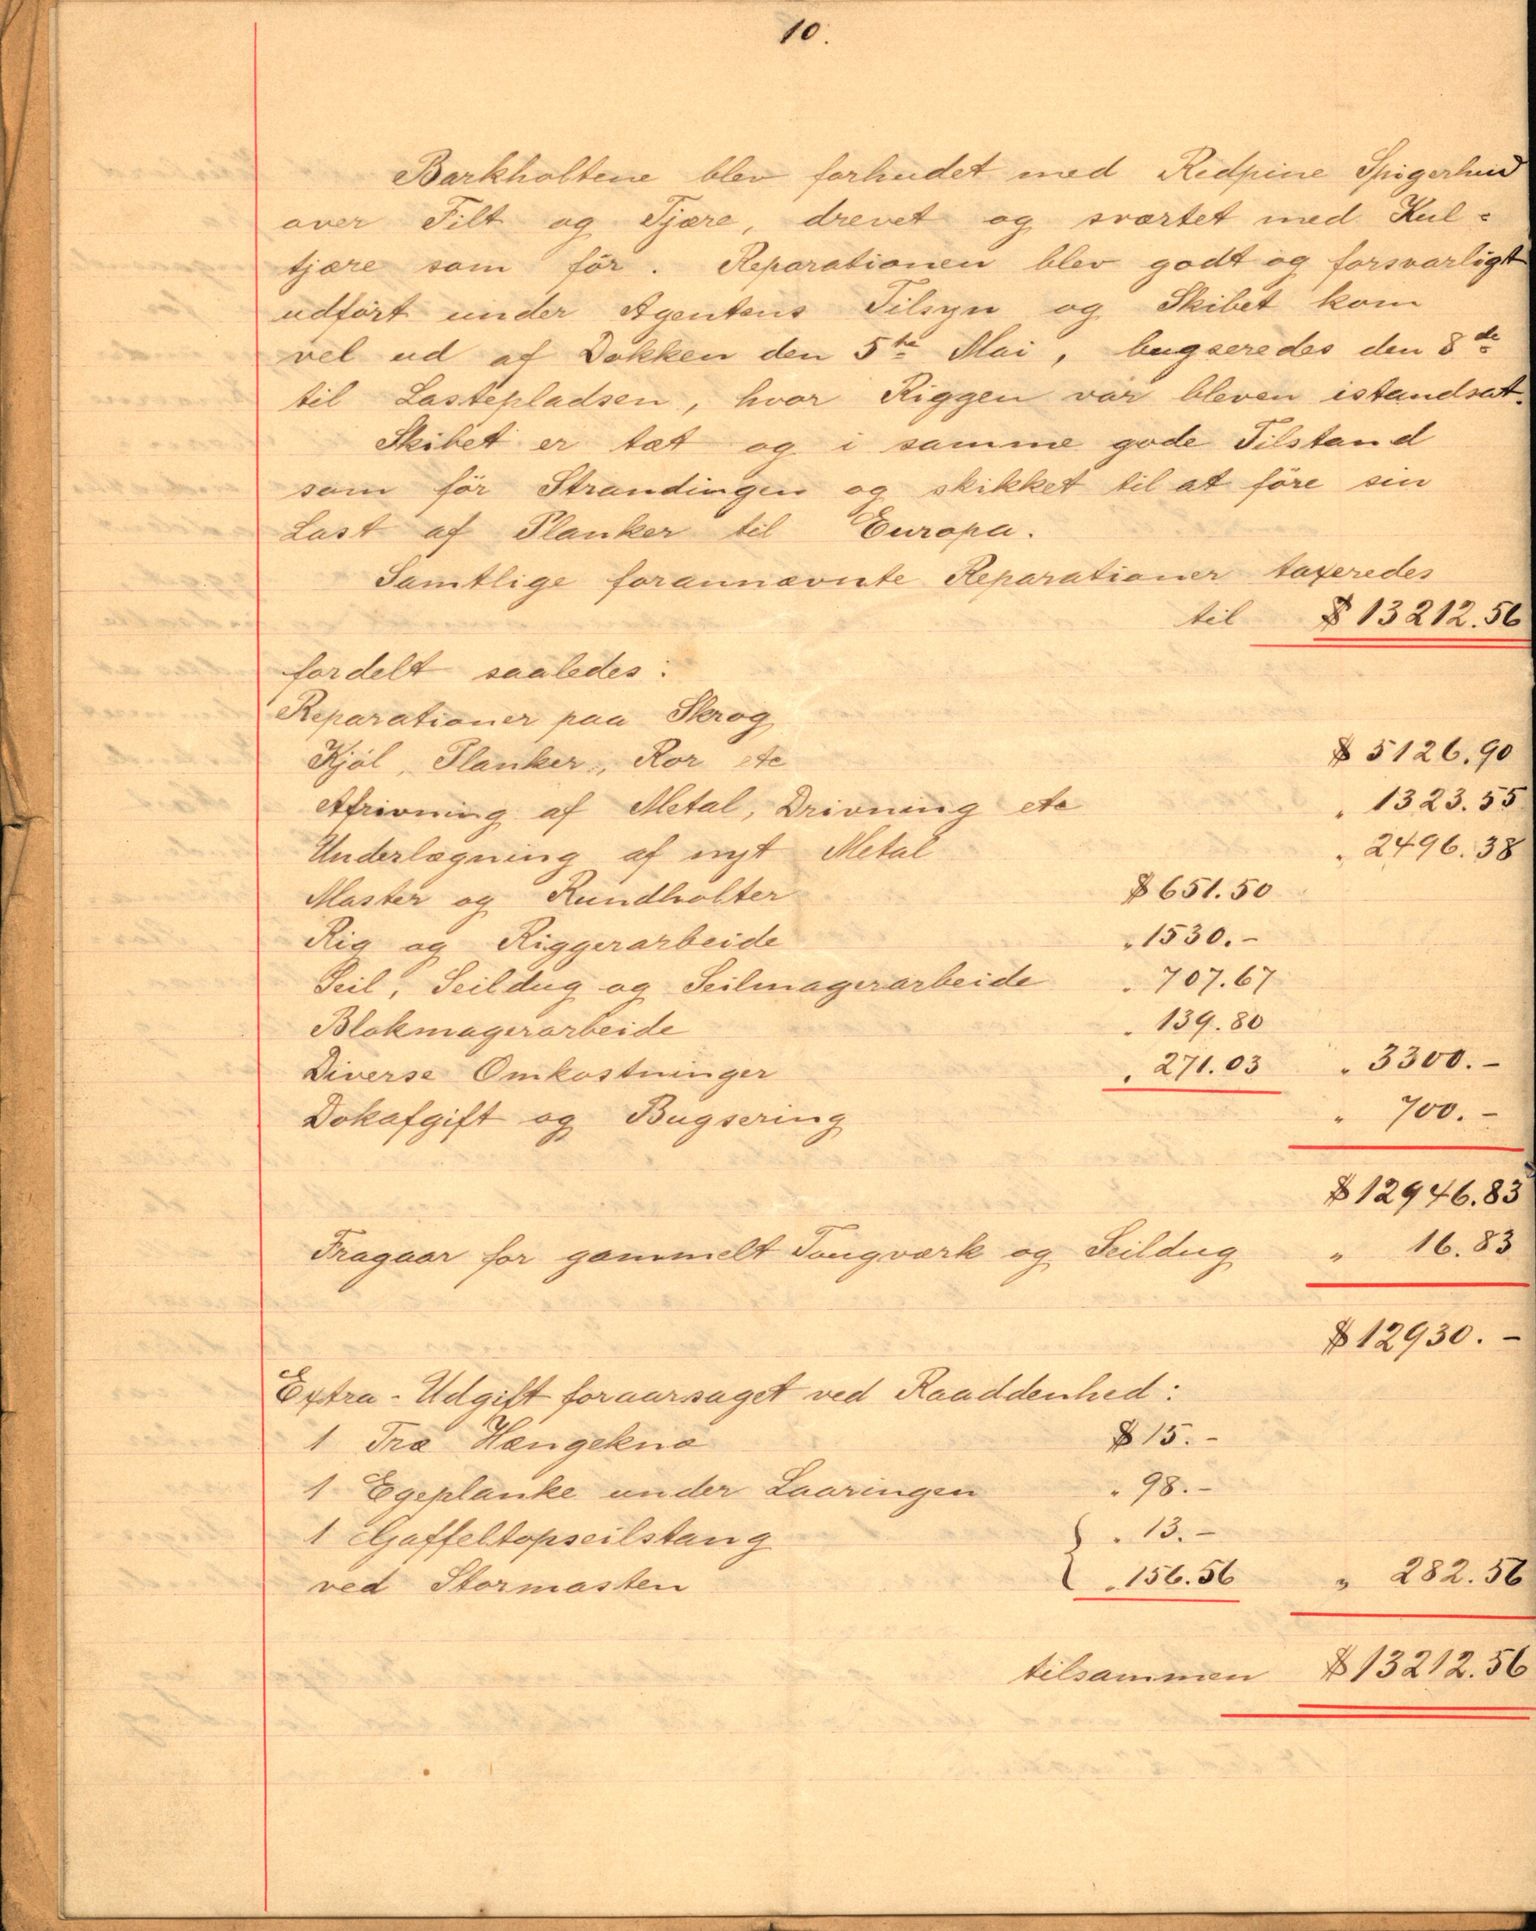 10.
Barkholtene blev forhudet med Redpine Spigerhud
over Filt og Tjære, drevet og sværtet med Kul=
tjære som för. Reparationen blev godt og forsvarligt
udført under Agentens Tilsyn og Skibet kom
vel ud af Dokken den 5te Mai, bugseredes den 8de
til Lastepladsen, hvor Riggen var bleven istandsat.
Skibet er tæt og i samme gode Tilstand
som för Strandingen og skikket til at före sin
Last af Planker til Europa.
Samtlige forannævnte Reparationer taxeredes
til $ 13212.56
fordelt saaledes:
Reparationer paa Skrog
Kjöl, Planker, Ror etc $ 5126.90
Afrivning af Metal, Drivning etc " 1323.55
Underlægning af nyt Metal " 2496.38
Master og Rundholter $ 651.50
Rig og Riggerarbeide " 1530.-
Seil, Seildug og Seilmagerarbeide " 707.67
Blokmagerarbeide " 139.80
Diverse Omkostninger " 271.03 " 3300.-
Dokafgift og Bugsering " 700.-
$ 12946.83
Fragaar for gammelt Tougværk og Seildug " 16.83
$ 12930.-
Extra-Udgift foraarsaget ved Raaddenhed:
1 Træ Hængeknæ $ 15.-
1 Egeplanke under Laaringen " 98.-
1 Gaffeltopseilstang } " 13.-
ved Stormasten { " 156.56 " 282.56
tilsammen $ 13212.56